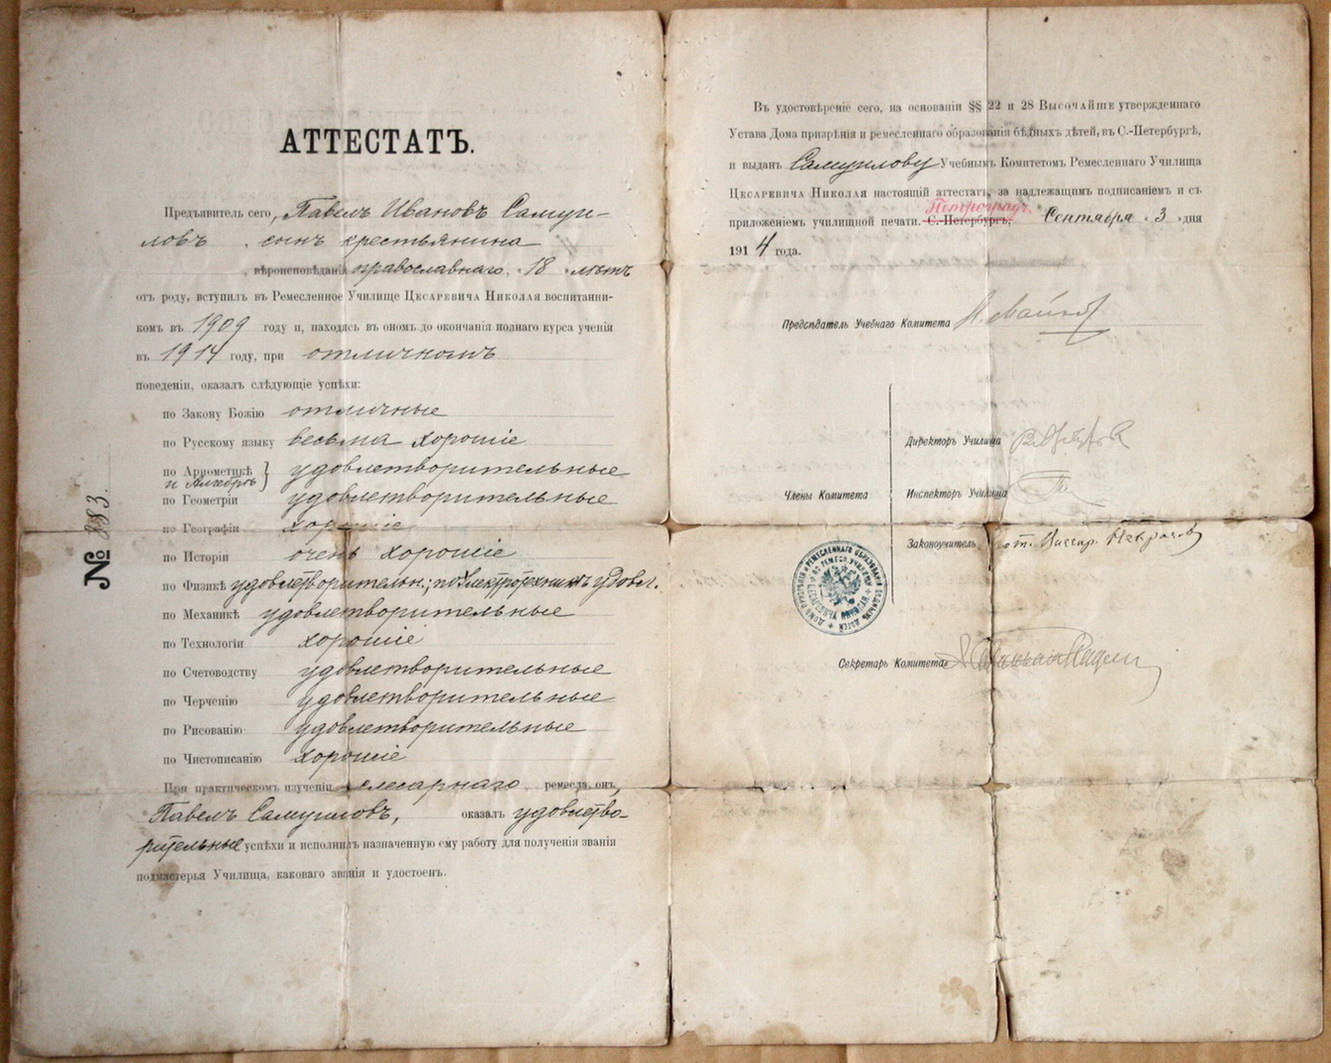 АТТЕСТАТЪ.
Предъявитель сего, Павелъ Ивановъ Самуи-
ловъ, сынъ крестьянина
, вѣроисповѣданія православнаго, 18 лѣтъ
отъ роду, вступилъ въ Ремесленное Училище Цесаревича Николая воспитанни-
комъ въ 1909 году и, находясь въ ономъ до окончанія полнаго курса ученія
въ 1914 году, при отличномъ
поведеніи, оказалъ слѣдующіе успѣхи:
по Закону Божію отличные
по Русскому языку весьма хорошіе
по Ариѳметикѣ } удовлетворительные
и Алгебрѣ
по Геометріи удовлетворительные
по Географіи хорошіе
по Исторіи очень хорошіе
по Физикѣ удовлетворительн.; по Электротехникѣ удовл.
по Механикѣ удовлетворительные
по Технологіи хорошіе
по Счетоводству удовлетворительные
по Черченію удовлетворительные
по Рисованію удовлетворительные
по Чистописанію хорошіе
При практическомъ изученіи слесарнаго ремесла, онъ,
Павелъ Самуиловъ, оказалъ удовлетво-
рительные успѣхи и исполнилъ назначенную ему работу для полученія званія
подмастерья Училища, каковаго званія и удостоенъ.
№ 883.
Въ удостовѣреніе сего, на основаніи §§ 22 и 28 Высочайше утвержденнаго
Устава Дома призрѣнія и ремесленнаго образованія бѣдныхъ дѣтей, въ С.-Петербургѣ,
и выданъ Самуилову Учебнымъ Комитетомъ Ремесленнаго Училища
Цесаревича Николая настоящій аттестатъ, за надлежащимъ подписаніемъ и съ
Петроградъ
приложеніемъ училищной печати. С.-Петербургъ, Сентября « 3 » дня
1914 года.
Предсѣдатель Учебнаго Комитета
Директоръ Училища
Члены Комитета
Инспекторъ Училища
Законоучитель
Секретарь Комитета